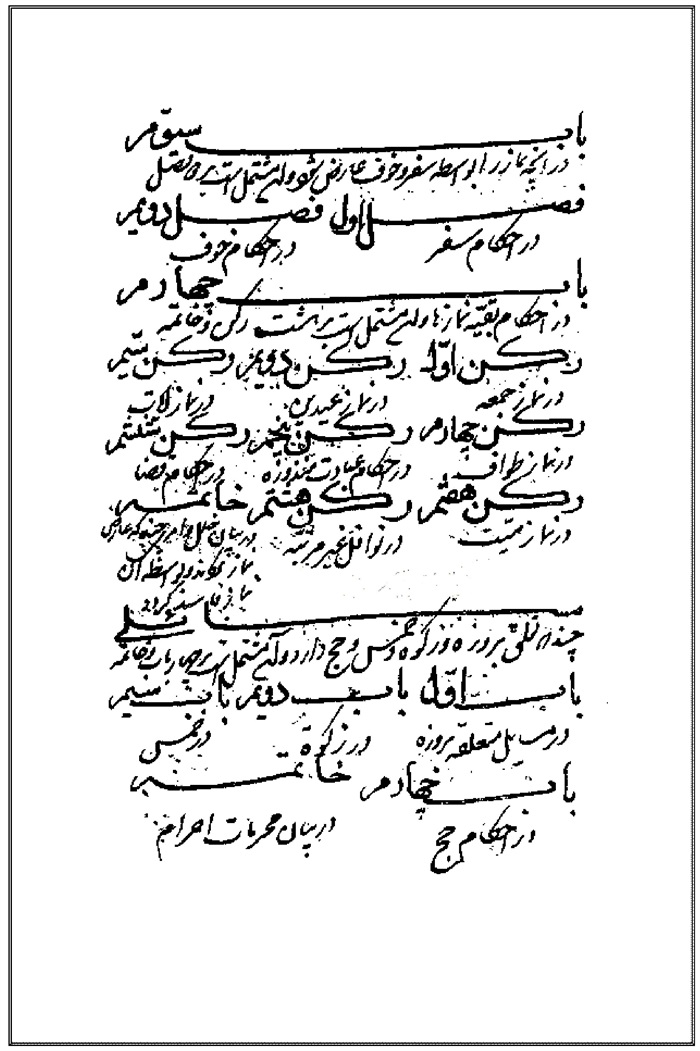 باب سوم
در آنچه نماز را بواسطه سفر و خوف عارض شود و آن مشتمل است بر دو فصل
فصل اول فصل دویم
در احکام سفر در احکام خوف
باب چهارم
در احکام بقیّه نمازها و آن مشتمل است بر هشت رکن و خاتمه
رکن اوّل رکن دویم رکن سیّم
در نماز جمعه در نماز عیدین در نماز آیات
رکن چهارم رکن پنجم رکن ششم
در نماز طواف در احکام عبادت منذوره در احکام قضا
رکن هفتم رکن هشتم خاتمه
در نماز میّت در نوافل غیر مرتّبه در بیان خلل و امر چند که عارض
نماز و بواسطه آن
نماز فاسد گردد
مسائلی
چند که تعلّق بروزه و زکوة و خمس و حج دارد و آن مشتمل است بر چهار باب و خاتمه
باب اوّل باب دویم باب سیم
در مسایل متعلّقه بروزه در زکوة در خمس
باب چهارم خاتمه
در احکام حج در بیان محرمات احرام